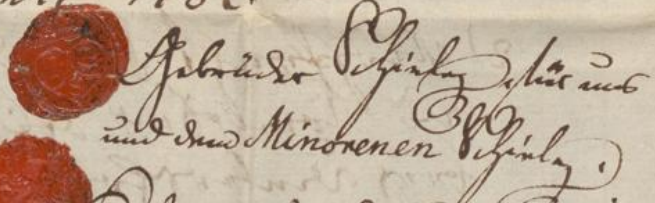 Gebrüder Schiele, für uns
und dem Minorenen Schiele.